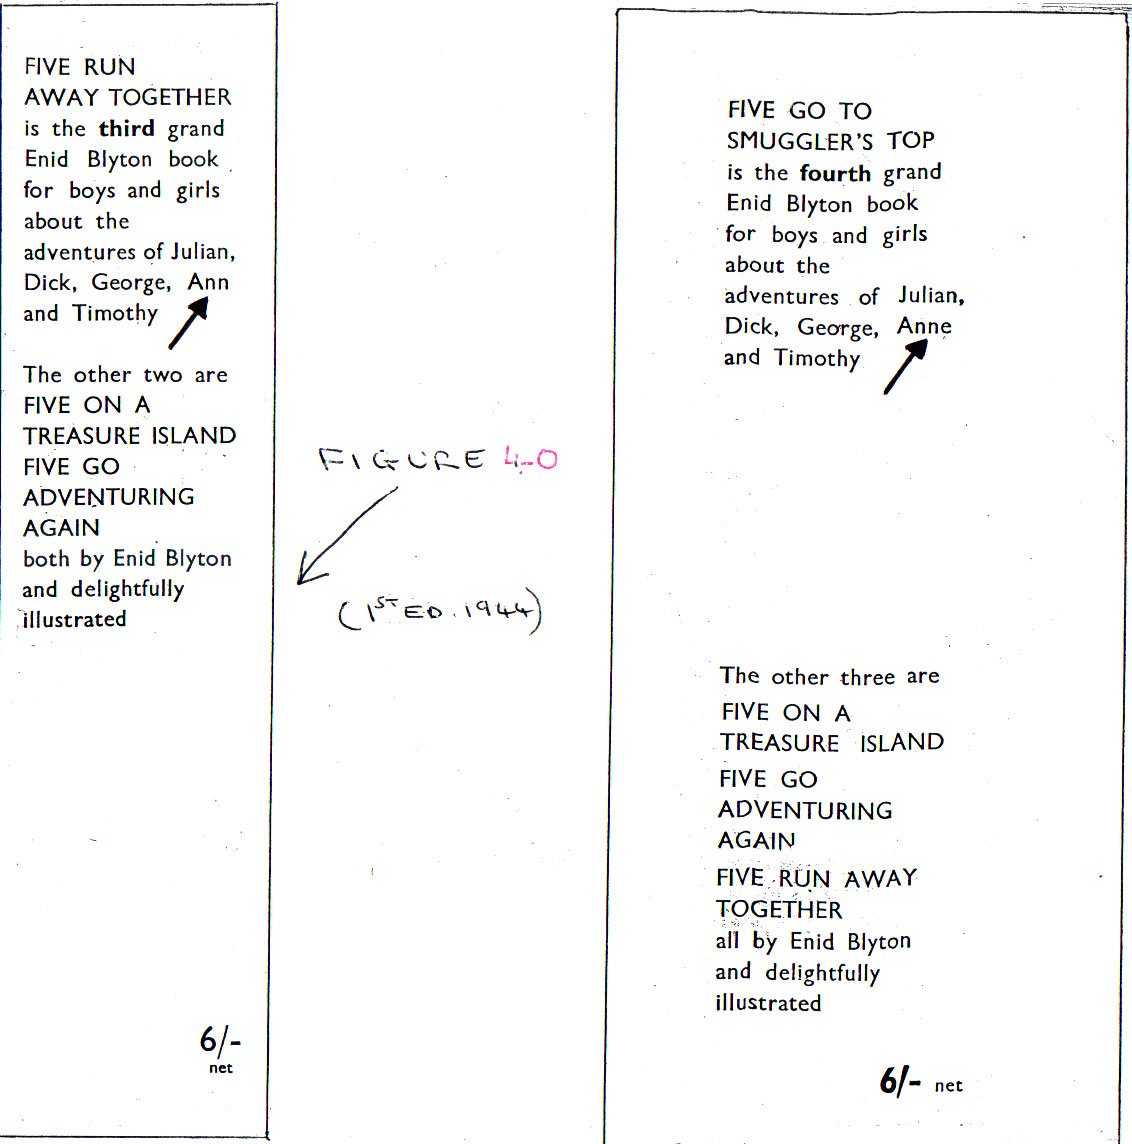 FIVE RUN
AWAY TOGETHER
is the third grand
Enid Blyton book
for boys and girls
about the
adventures of Julian,
Dick, George, Ann
and Timothy
The other two are
FIVE ON A
TREASURE ISLAND
FIVE GO
ADVENTURING
AGAIN
both by Enid Blyton
and delightfully
illustrated
6/-
net
FIGURE 40
(1ST ED. 1944)
FIVE GO TO
SMUGGLER'S TOP
is the fourth grand
Enid Blyton book
for boys and girls
about the
adventures of Julian,
Dick, George, Anne
and Timothy
The other three are
FIVE ON A
TREASURE ISLAND
FIVE GO
ADVENTURING
AGAIN
FIVE RUN AWAY
TOGETHER
all by Enid Blyton
and delightfully
illustrated
6/- net